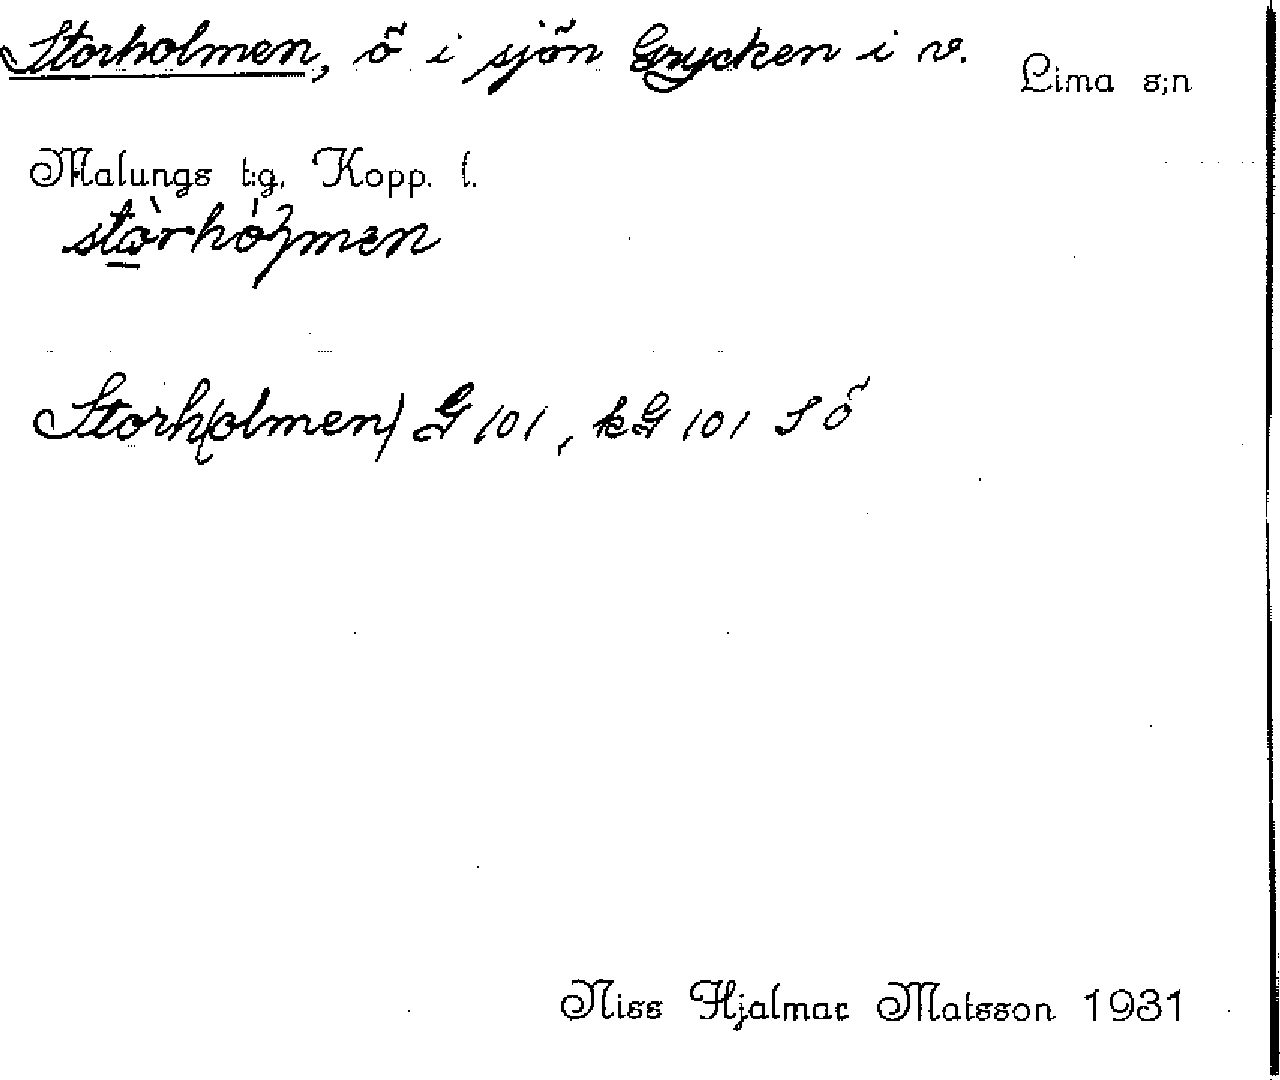 Storholmen, ö i sjön Grycken i v. Lima s;n
Malungs t:g, Kopp. l.
Storh(olmen) G 101, kG 101 S ö
Niss Hjalmar Matsson 1931